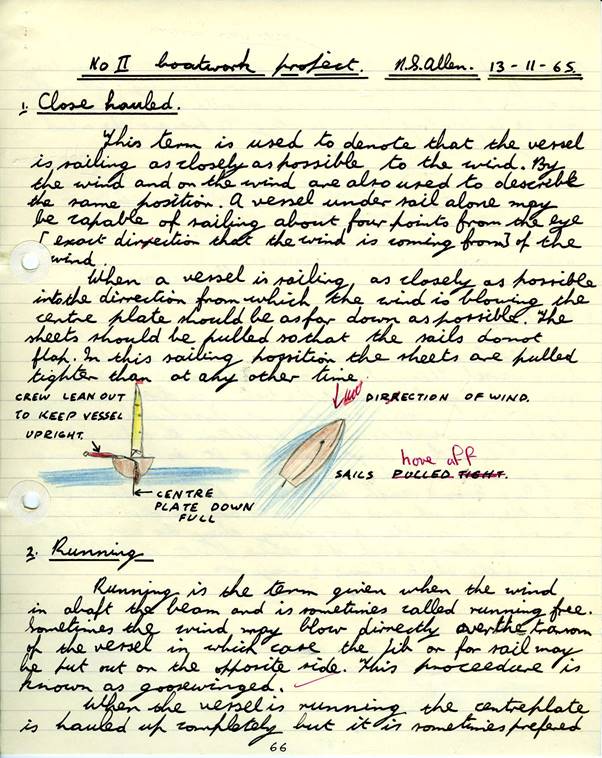 No II boatwork project. N.S.Allen. 13-11-65.
1. Close hauled.
This term is used to denote that the vessel
is sailing as closely as possible to the wind. By
the wind and on the wind are also used to describe
the same position. A vessel under sail alone may
be capable of sailing about four points from the eye
[exact direction that the wind is coming from] of the
wind.
When a vessel is sailing as closely as possible
into the dirrection from which the wind is blowing the
centre plate should be as far down as possible. The
sheets should be pulled so that the sails donot
flap. In this sailing hopsition the sheets are pulled
tighter than at any other time.
CREW LEAN OUT
TO KEEP VESSEL
UPRIGHT.
DIRRECTION OF WIND.
hove off
SAILS PULLED TIGHT.
CENTRE
PLATE DOWN
FULL
2. Running
Running is the term given when the wind
in abaft the beam and is sometimes called running free.
Sometimes the wind may blow directly over the transom
of the vessel in which case the jib or for sail may
be put out on the opposite side. This proceedure is
known as goosewinged.
When the vessel is running the centreplate
is hauled up completely but it is sometimes prefered
66